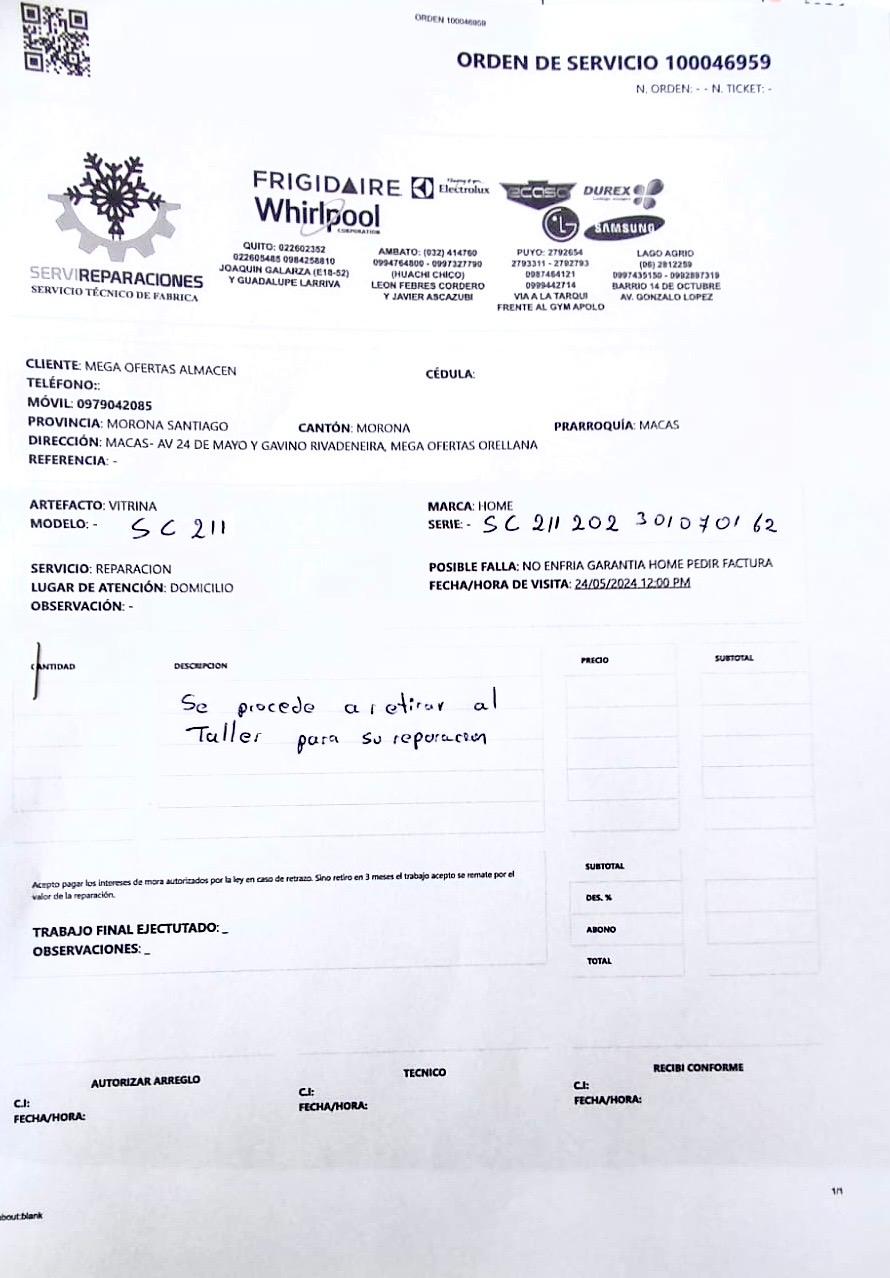 ORDEN 100046959
ORDEN DE SERVICIO 100046959
N. ORDEN: - - N. TICKET: -
FRIGIDAIRE Electrolux ecasa DUREX
Whirlpool LG SAMSUNG
CORPORATION
SERVIREPARACIONES
SERVICIO TÉCNICO DE FABRICA
QUITO: 022602352
022605485 0984258810
JOAQUIN GALARZA (E18-52)
Y GUADALUPE LARRIVA
AMBATO: (032) 414760
0994764800 - 0997327790
(HUACHI CHICO)
LEON FEBRES CORDERO
Y JAVIER ASCAZUBI
PUYO: 2792654
2793311 - 2792793
0987464121
0999442714
VIA A LA TARQUI
FRENTE AL GYM APOLO
LAGO AGRIO
(06) 2812259
0997435150 - 0992897319
BARRIO 14 DE OCTUBRE
AV. GONZALO LOPEZ
CLIENTE: MEGA OFERTAS ALMACEN CÉDULA:
TELÉFONO::
MÓVIL: 0979042085
PROVINCIA: MORONA SANTIAGO CANTÓN: MORONA PRARROQUÍA: MACAS
DIRECCIÓN: MACAS- AV 24 DE MAYO Y GAVINO RIVADENEIRA, MEGA OFERTAS ORELLANA
REFERENCIA: -
ARTEFACTO: VITRINA MARCA: HOME
MODELO: - SC 211 SERIE: - SC 211 202 301070162
SERVICIO: REPARACION POSIBLE FALLA: NO ENFRIA GARANTIA HOME PEDIR FACTURA
LUGAR DE ATENCIÓN: DOMICILIO FECHA/HORA DE VISITA: 24/05/2024 12:00 PM
OBSERVACIÓN: -
CANTIDAD DESCRIPCION PRECIO SUBTOTAL
Se procede a retirar al
Taller para su reparacion
SUBTOTAL
Acepto pagar los intereses de mora autorizados por la ley en caso de retrazo. Sino retiro en 3 meses el trabajo acepto se remate por el
valor de la reparación.
DES. %
TRABAJO FINAL EJECTUTADO: _ ABONO
OBSERVACIONES: _ TOTAL
AUTORIZAR ARREGLO TECNICO RECIBI CONFORME
C.I: C.I: C.I:
FECHA/HORA: FECHA/HORA: FECHA/HORA:
1/1
about:blank